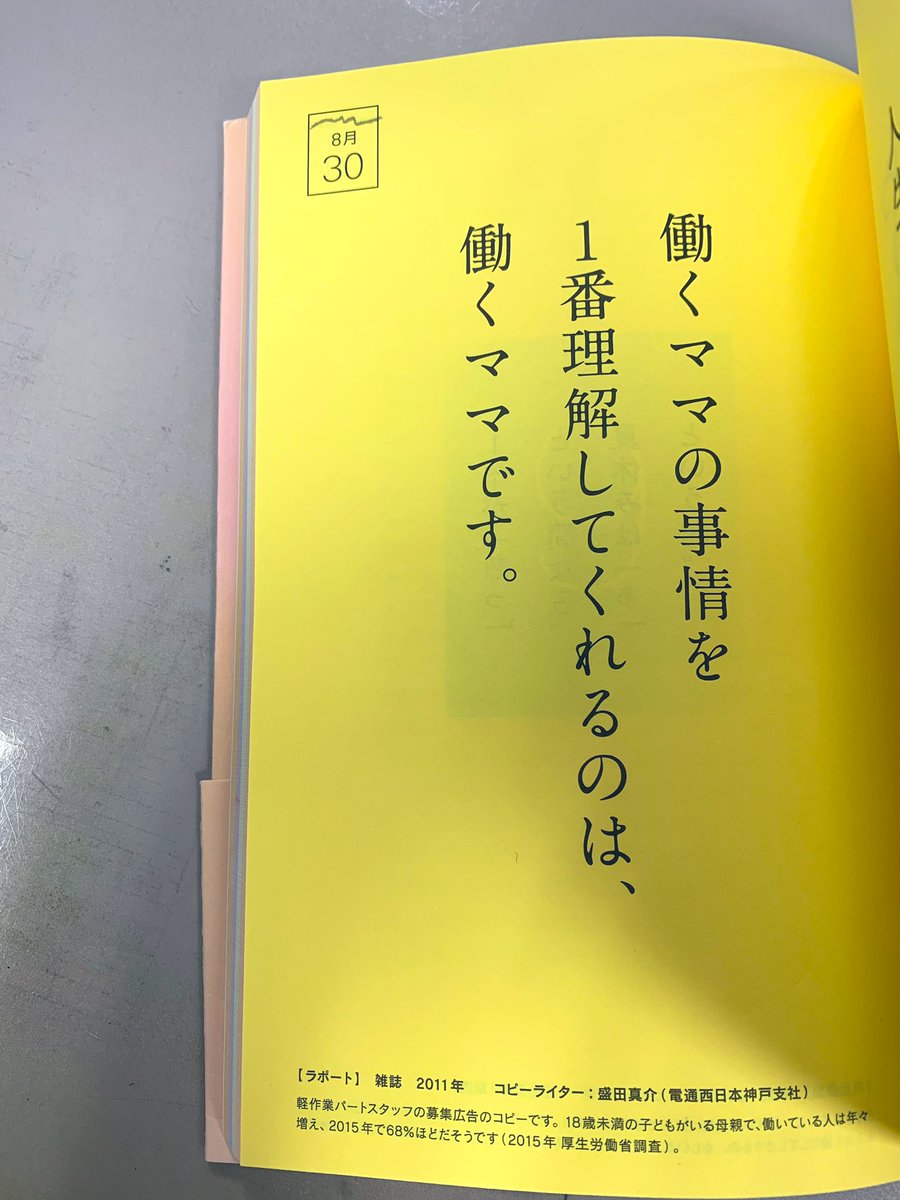 8月
30
働くママの事情を
1番理解してくれるのは、
働くママです。
【ラポート】 雑誌 2011年 コピーライター：盛田真介（電通西日本神戸支社）
軽作業パートスタッフの募集広告のコピーです。18歳未満の子どもがいる母親で、働いている人は年々
増え、2015年で68％ほどだそうです（2015年 厚生労働省調査）。